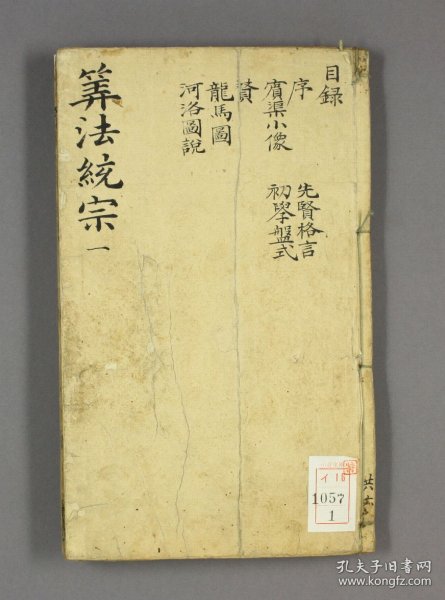 目録
序
先賢格言
賔渠小像
初學盤式
贊
龍馬圖
河洛圖說
筭法統宗 一
イ16
1057
1
孔夫子旧书网
www.kongfz.com